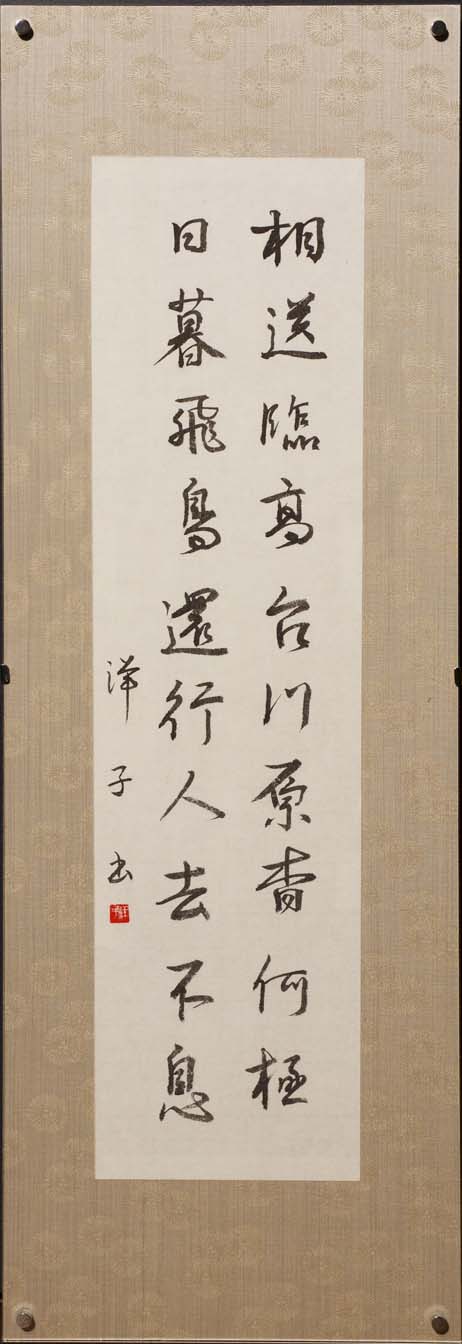 相送臨高台川原杳何極
日暮飛鳥還行人去不息
子书